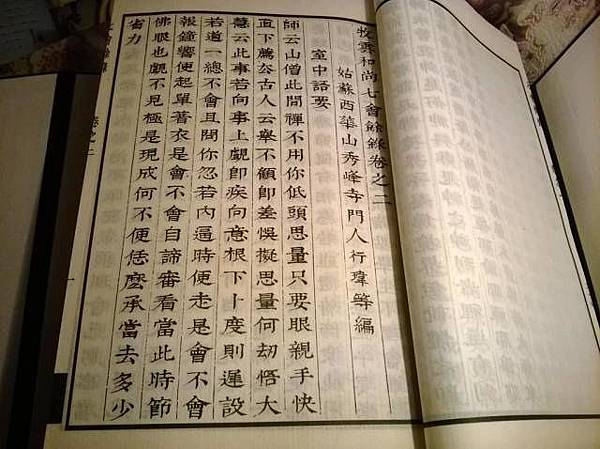 牧雲和尚七會餘錄卷之二
姑蘇西華山秀峰寺門人行瑋等編
室中語要
師云山僧此間禪不用你低頭思量只要眼親手快
直下薦公古人云舉不顧即差悞擬思量何劫悟大
慧云此事若向事上覷即疾向意根下卜度則遲設
若道一總不會且問你忽若內逼時便走是會不會
報鐘響便起單著衣是會不會自諦審看當此時節
佛眼也覷不見極是現成何不便恁麼承當去多少
省力
卷之二
一